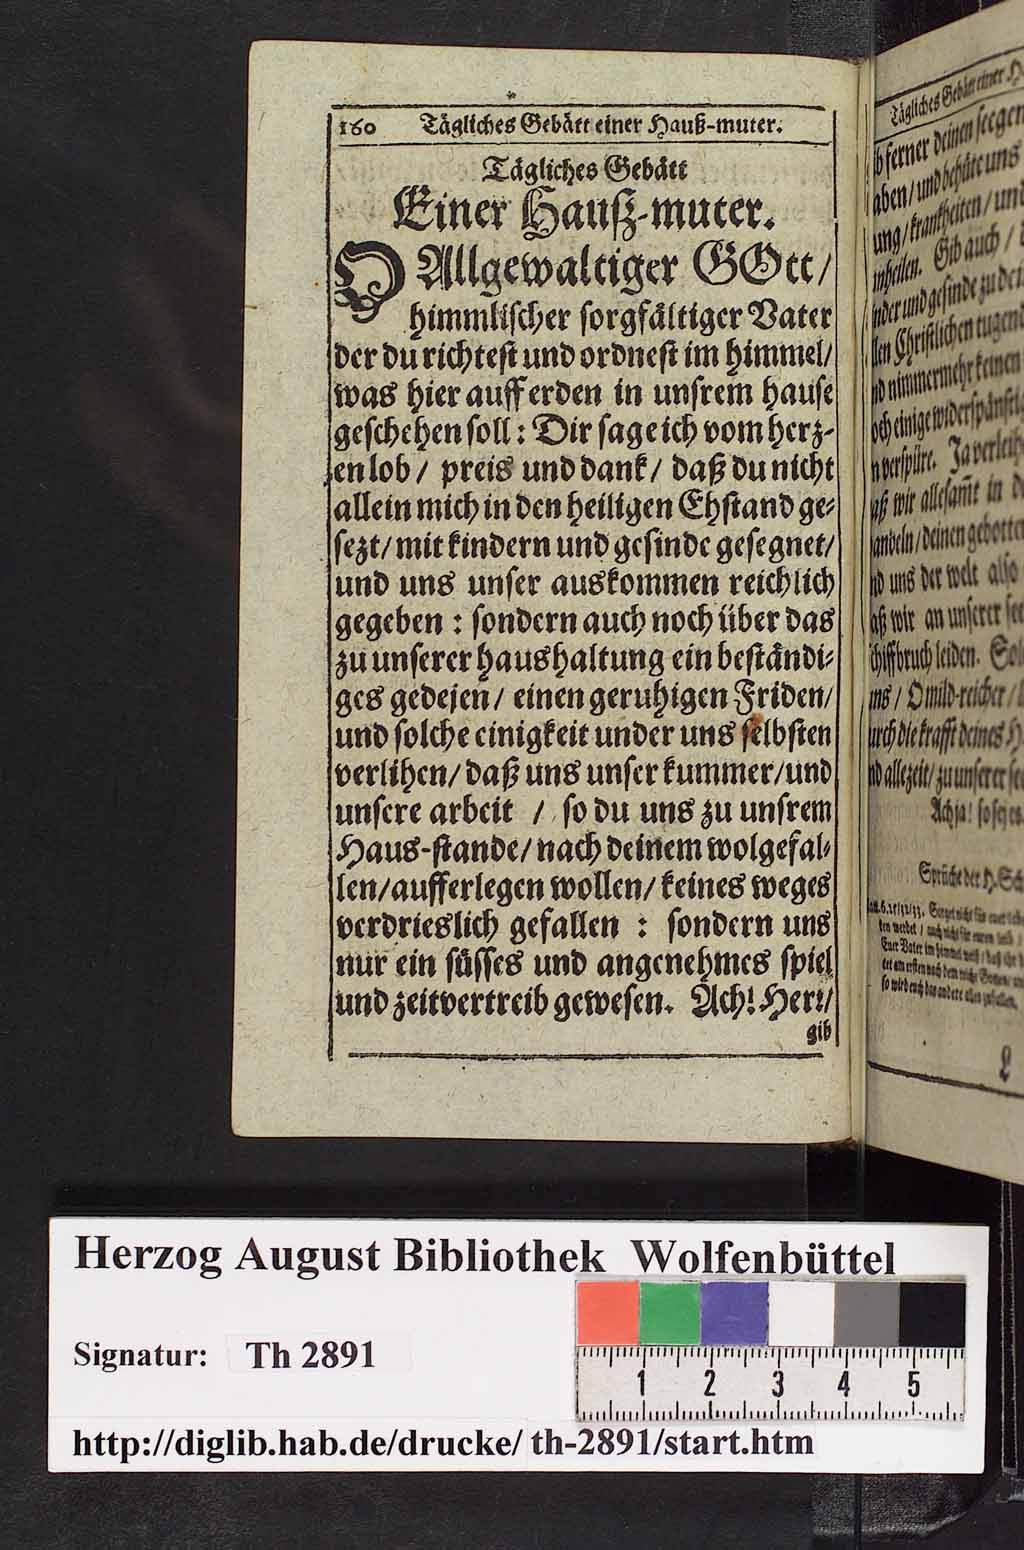 160 Tägliches Gebätt einer Hauß-muter.
Tägliches Gebätt
Einer Hauß-muter.
O Allgewaltiger GOtt/
himmlischer sorgfältiger Vater
der du richtest und ordnest im himmel/
was hier auff erden in unsrem hause
geschehen soll: Dir sage ich vom herz-
en lob/ preis und dank/ daß du nicht
allein mich in den heiligen Ehstand ge-
sezt/ mit kindern und gesinde gesegnet/
und uns unser auskommen reichlich
gegeben: sondern auch noch über das
zu unserer haushaltung ein beständi-
ges gedejen/ einen geruhigen Friden/
und solche einigkeit under uns selbsten
verlihen/ daß uns unser kummer/ und
unsere arbeit / so du uns zu unsrem
Haus-stande/ nach deinem wolgefal-
len/ aufferlegen wollen/ keines weges
verdrieslich gefallen : sondern uns
nur ein süsses und angenehmes spiel
und zeitvertreib gewesen. Ach! Herr/
gib
Tägliches Gebätt einer
ferner deinen seegen
aben/ und behüte uns
ung/ krankheiten/ und
unheilen. Gib auch/
inder und gesinde zu
llen Christlichen tugend
nd nimmermehr keinen
och einige widerspänstig
n verspüre. Ja verleih
aß wir allesamt in
andeln/ deinen gebotten
nd uns der welt also
aß wir an unserer see
chiffbruch leiden.
uns/ O mild-reicher/
urch die krafft deines H
nd allezeit/ zu unserer
Ach ja! so sey es.
Sprüche der H. Sch
Sorget nicht für euer
den werdet / auch nicht für euren leib
Euer Vater im himmel weiß/ daß ihr
so wird euch das andere alles zufallen.
L
Herzog August Bibliothek Wolfenbüttel
Signatur: Th 2891
1 2 3 4 5
http://diglib.hab.de/drucke/ th-2891/start.htm